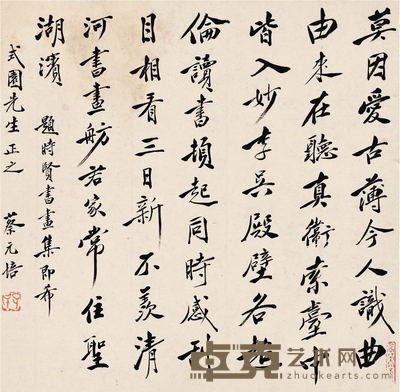 莫因愛古薄今人識曲
由來在聽真衛索臺中
皆入妙李吳殿壁各超
倫讀書頓起同時感刮
目相看三日新不羨清
河書畫舫君家常住聖
湖濱 題時賢書畫集即希
式園先生正之 蔡元培
艺术网
zhuokearts.com